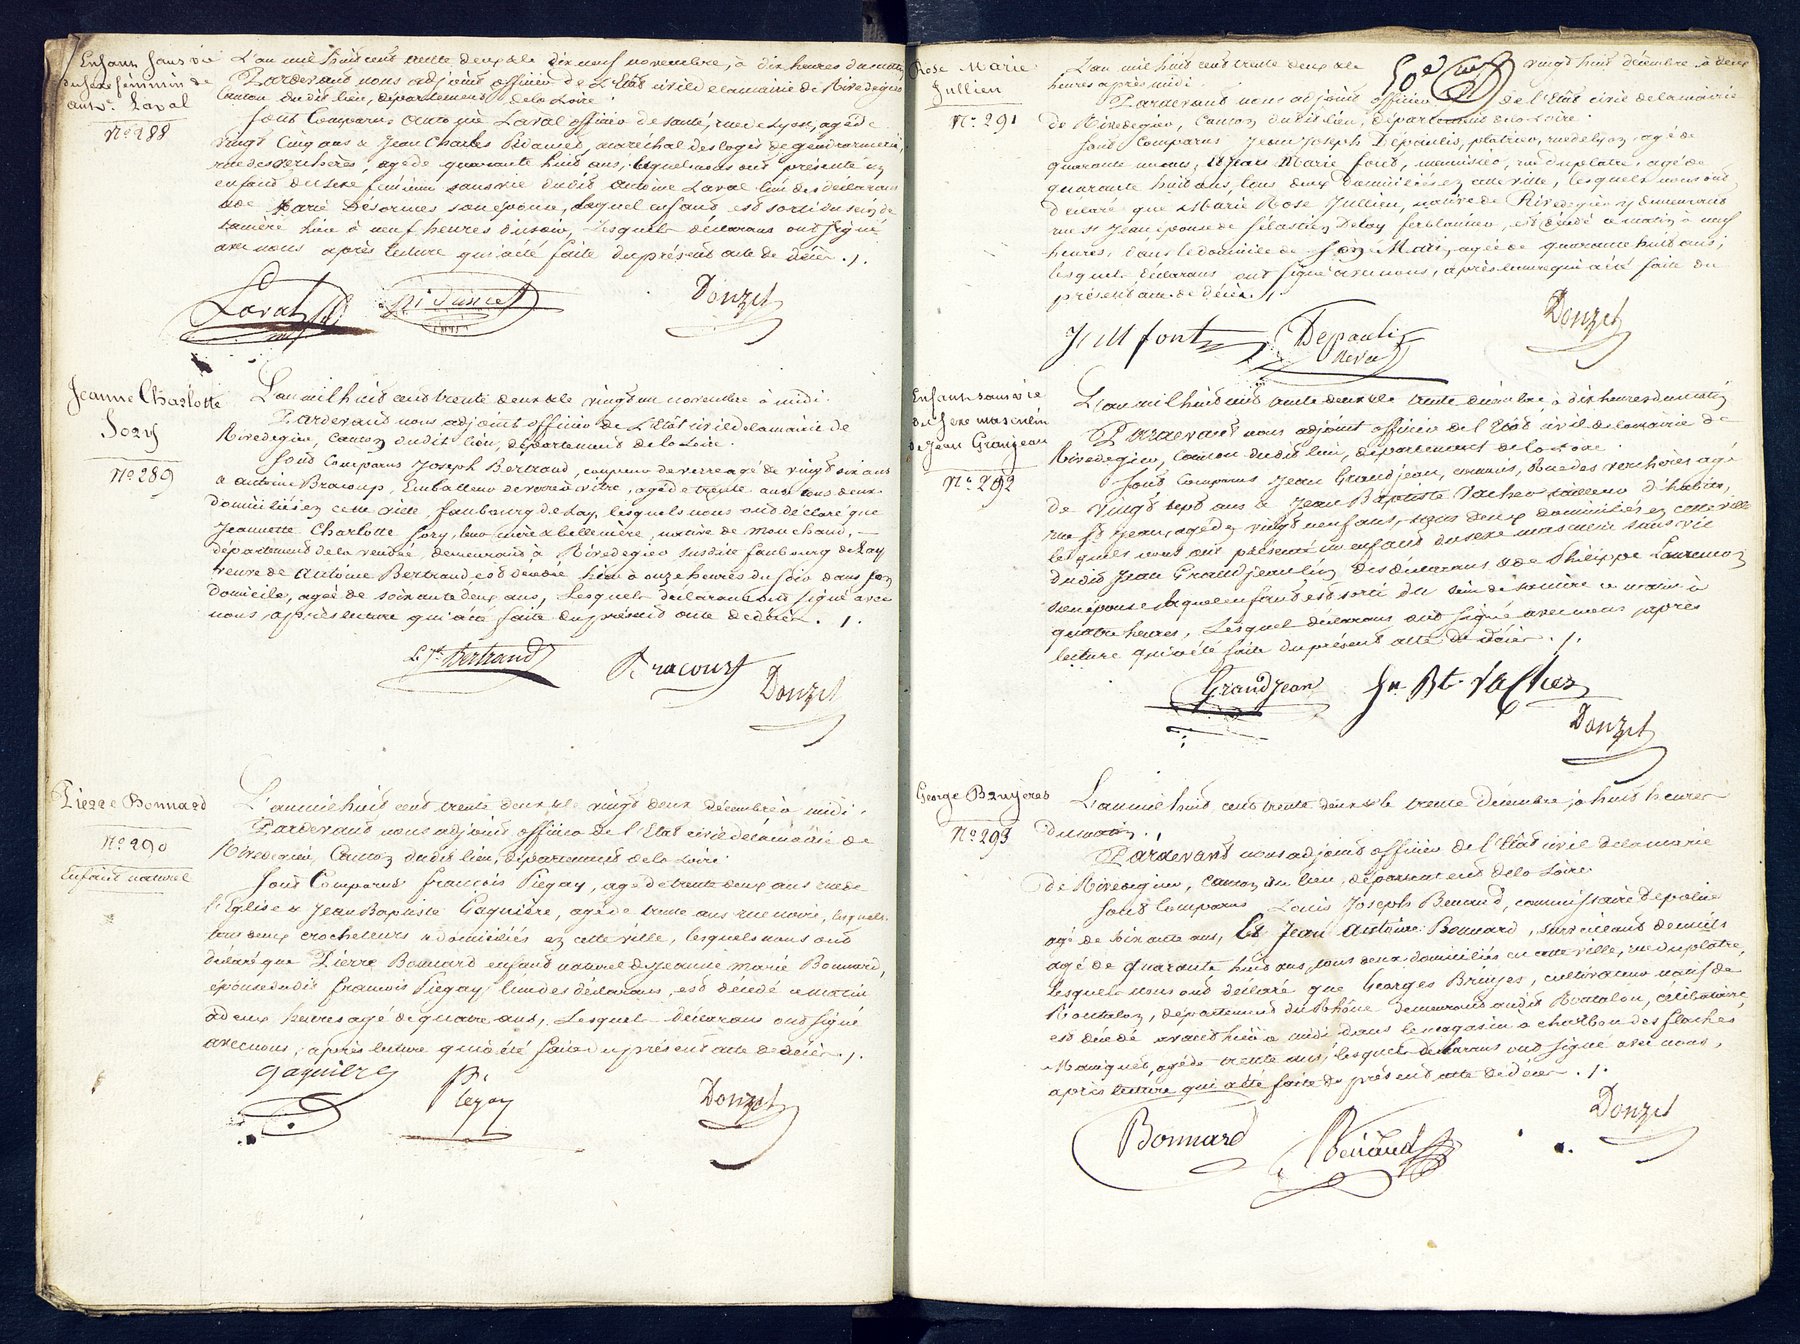 Enfant sans vie
du sexe féminin de
Ant.e Laval
N.o 288
L'an mil huit cent trente deux & le dix neuf novembre, à dix heures du matin
Pardevant nous adjoint officier de l'Etat civil de la mairie de Rivedegier
Canton dudit lieu, département de la Loire.
Sont Comparus Antoine Laval officier de santé, rue de Lyon, agé de
vingt cinq ans & Jean Charles maréchal des logis de gendarmerie,
rue des verchères, agé de quarante huit ans, lesquels nous ont présenté un
enfant du sexe féminin sans vie dudit Antoine Laval l'un des déclarans
& de Marie Désormes son épouse, lequel enfant est sorti du sein de
sa mère hier à neuf heures du soir, lesquels déclarans ont signé
avec nous après lecture qui a été faite du présent acte de décès ./.
Laval
Donzel
Jeanne Charlotte
Sory
N.o 289
L'an mil huit cent trente deux & le vingt un novembre à midi.
Pardevant nous adjoint officier de l'Etat civil de la mairie de
Rivedegier, Canton dudit lieu, département de la Loire.
Sont Comparus Joseph Bertrand, coupeur de verre agé de vingt six ans
& Antoine Bracoup, Emballeur de verre à vitre, agé de trente ans tous deux
domiciliés en cette ville, faubourg de Lay, lesquels nous ont déclaré que
Jeannette Charlotte Sory, leur mère & belle mère, native de Mouchaud,
département de la vendée demeurant à Rivedegier susdite faubourg de Lay
veuve de Antoine Bertrand, est décédée hier à onze heures du soir dans son
domicile, agée de soixante deux ans, Lesquels déclarans ont signé avec
nous, après lecture qui a été faite du présent acte de décès . /.
Bertrand
Bracoust
Donzel
Pierre Bonnard
N.o 290
Enfant naturel
L'an mil huit cent trente deux & le vingt deux décembre à midi.
Pardevant nous adjoint officier de l'Etat civil de la mairie de
Rivedegier, Canton dudit lieu, département de la Loire.
Sont Comparus françois Piegay, agé de trente deux ans rue de
l'Eglise & Jean Baptiste Gaquière, agé de trente ans rue noire, lesquels
tous deux crocheteurs & domiciliés en cette ville, lesquels nous ont
déclaré que Pierre Bonnard enfant naturel de Jeanne Marie Bonnard,
épouse dudit françois Piegay l'un des déclarans, est décédé ce matin
à deux heures agé de quatre ans, Lesquels déclarans ont signé
avec nous, après lecture qui a été faite du présent acte de décès ./.
gaquiere
Pi
Piegay
Donzel
Rose Marie
Jullien
N.o 291
50e
L'an mil huit cent trente deux & le vingt huit décembre à deux
heures après midi
Pardevant nous adjoint officier de l'Etat civil de la mairie
de Rivedegier, Canton dudit lieu, département de la Loire.
Sont Comparus Jean Joseph Dépaulis, platrier, rue de Lyon, agé de
quarante un ans, & Jean Marie font, menuisier, rue du platre, agé de
quarante huit ans, tous deux domiciliés en cette ville, lesquels nous ont
déclaré que Marie Rose Jullien, native de Rivedegier y demeurant
rue St Jean épouse de Sébastien Delay ferblantier, est décédé ce matin à neuf
heures, dans le domicile de son Mari, agée de quarante huit ans,
lesquels déclarans ont signé avec nous, après lecture qui a été faite du
présent acte de décès ./.
J M font
Depauli
Donzel
Enfant sans vie
du sexe masculin
de Jean Granjean
N.o 292
L'an mil huit cent trente deux & le trente décembre, à dix heures du matin
Pardevant nous adjoint officier de l'Etat civil de la mairie de
Rivedegier, Canton dudit lieu, département de la Loire.
Sont Comparus Jean Grandjean, commis, rue des verchères agé
de vingt sept ans & Jean Baptiste Vacher tailleur d'habits,
rue St Jean, agé de vingt neuf ans, tous deux domiciliés en cette ville
lesquels nous ont présenté un enfant du sexe masculin sans vie
dudit Jean Grandjean l'un des déclarans & de Philippe Laurençon
son épouse lequel enfant est sorti du sein de sa mère ce matin à
quatre heures, Lesquels déclarans ont signé avec nous après
lecture qui a été faite du présent acte de décès . /.
Grandjean
Jn Bt Vacher
Donzel
George Bruyeres
N.o 293
L'an mil huit cent trente deux & le trente Décembre, à huit heures
du matin.
Pardevant nous adjoint officier de l'Etat civil de la mairie
de Rivedegier, Canton du lieu, département de la Loire
Sont Comparus Louis Joseph Benaud, commissaire de police
agé de soixante ans, & Jean Antoine Bonnard, surveillant de nuits
agé de quarante huit ans, tous deux domiciliés en cette ville, rue du platre,
Lesquels nous ont déclaré que Georges Bruyes, cultivateur natif de
Rontalon, département du Rhône demeurant audit Rontalon, célibataire,
est décédé avant hier à midi dans le magasin à charbon des flaches
agé de trente ans, lesquels déclarans ont signé avec nous,
après lecture qui a été faite du présent acte de décès . /.
Bonnard
Benaud
Donzel